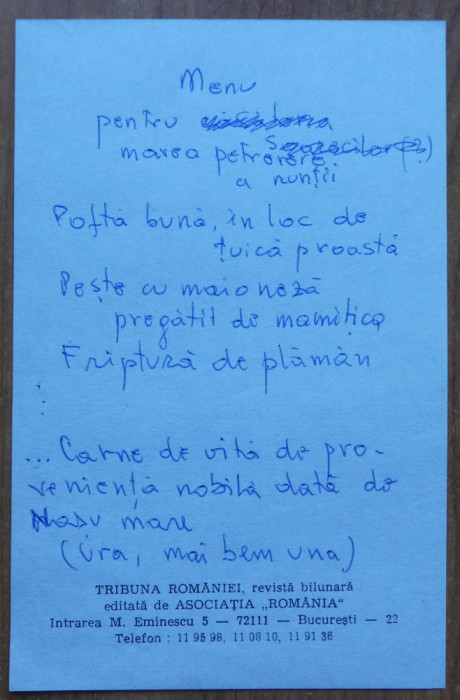 Menu
pentru
marea petrecere
a nunții
Poftă bună, în loc de
țuică proastă
Pește cu maioneză
pregătit de mamițica
Friptură de plămân
... Carne de vită de pro-
veniență nobilă dată de
Nasu mare
(Ura, mai bem una)
TRIBUNA ROMÂNIEI, revistă bilunară
editată de ASOCIAȚIA „ROMÂNIA“
Intrarea M. Eminescu 5 — 72111 — București — 22
Telefon : 11 95 98, 11 08 10, 11 91 36